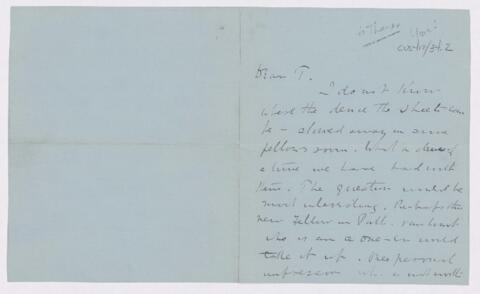 Dear T.
I do not know
where the deuce the sheets can
be – stowed away in some
fellows room. What a deuce of
a time we have had with
him. The question would be
most interesting. Perhaps the
new Fellow in Path.
who is an a one-er would
take it up. The personal
impression